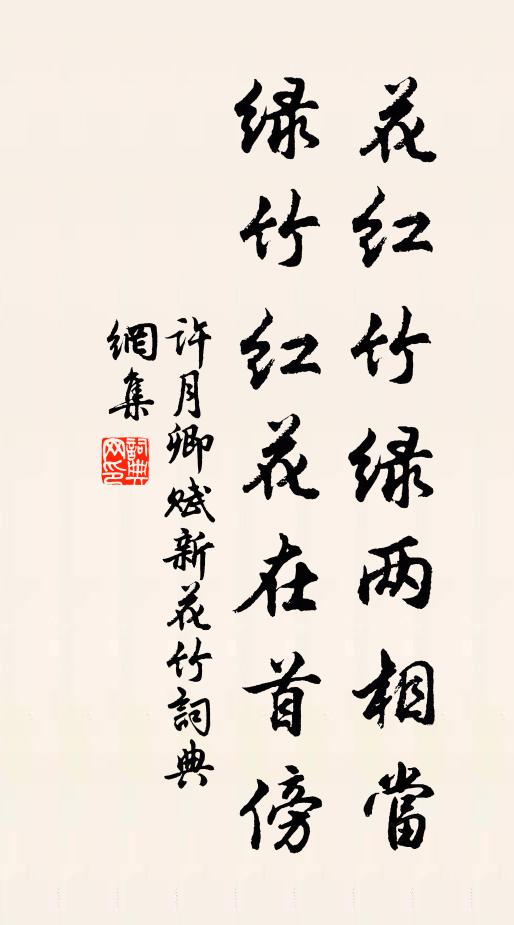 花红竹绿两相當
绿竹红花在首傍
許月卿賦新花竹詞典
網集
詞典网印